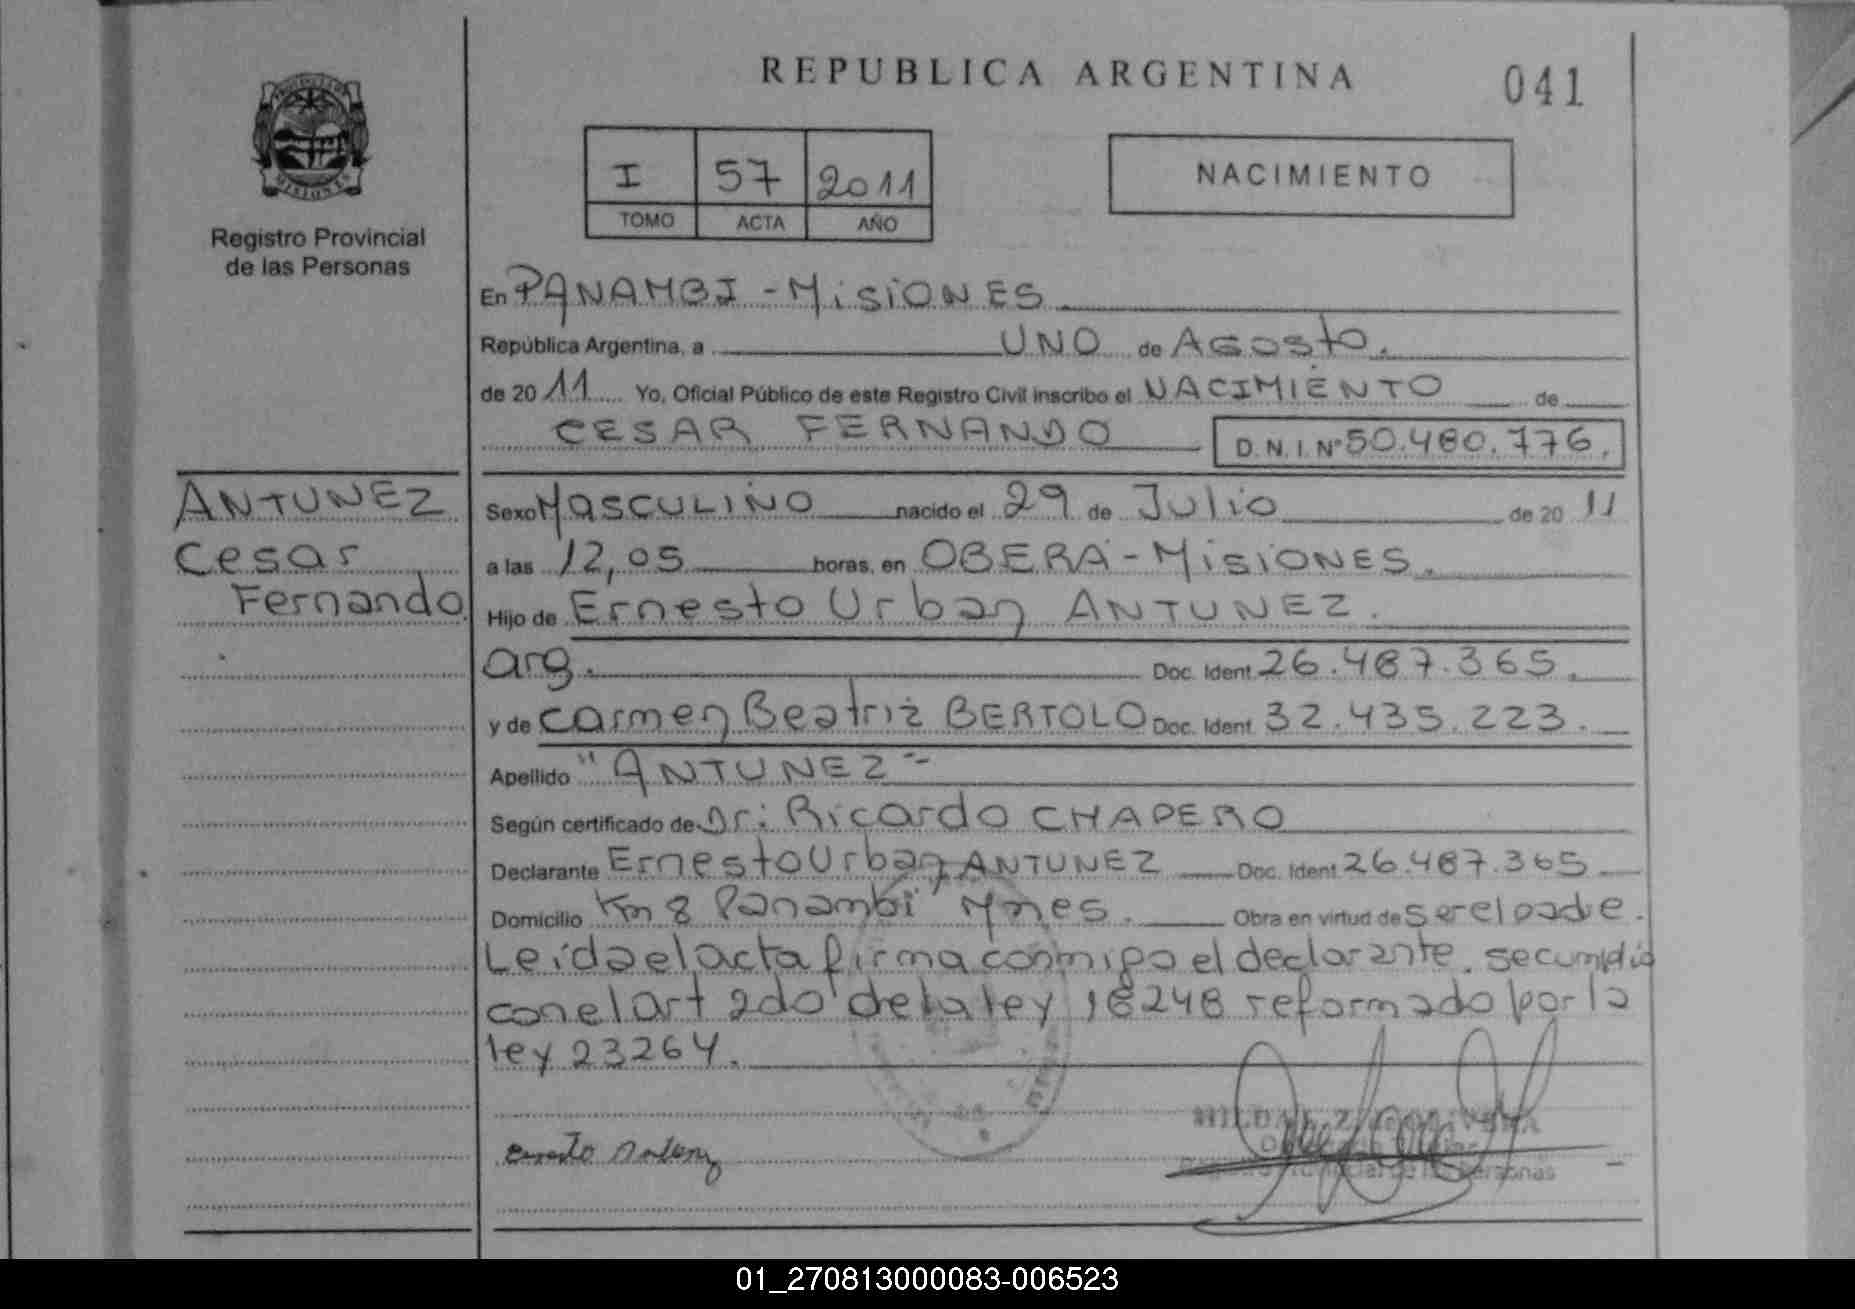 REPUBLICA ARGENTINA
041
I 57 2011
TOMO ACTA AÑO
NACIMIENTO
MISIONES
Registro Provincial
de las Personas
En PANAMBI - MiSiONES
República Argentina, a UNO de AGOSto.
de 2011 Yo, Oficial Público de este Registro Civil inscribo el NACIMIENTO de
CESAR FERNANDO D.N.I. Nº 50.480.776.
ANTUNEZ
Cesar
Fernando
Sexo MASCULINO nacido el 29 de Julio de 2011
a las 12,05 horas, en OBERA - MiSiONES.
Hijo de Ernesto Urban ANTUNEZ.
arg. Doc. Ident. 26.487.365.
y de Carmen Beatriz BERTOLO Doc. Ident. 32.435.223.
Apellido "ANTUNEZ"
Según certificado de Dr: Ricardo CHAPERO
Declarante Ernesto Urban ANTUNEZ Doc. Ident. 26.487.365
Domicilio Km 8 Panambi Mnes. Obra en virtud de ser el padre.
Leída el acta firma conmigo el declarante. se cumplio
con el art 2do de la ley 18248 reformado por la
ley 23264.
Registro Provincial de las Personas
01_270813000083-006523